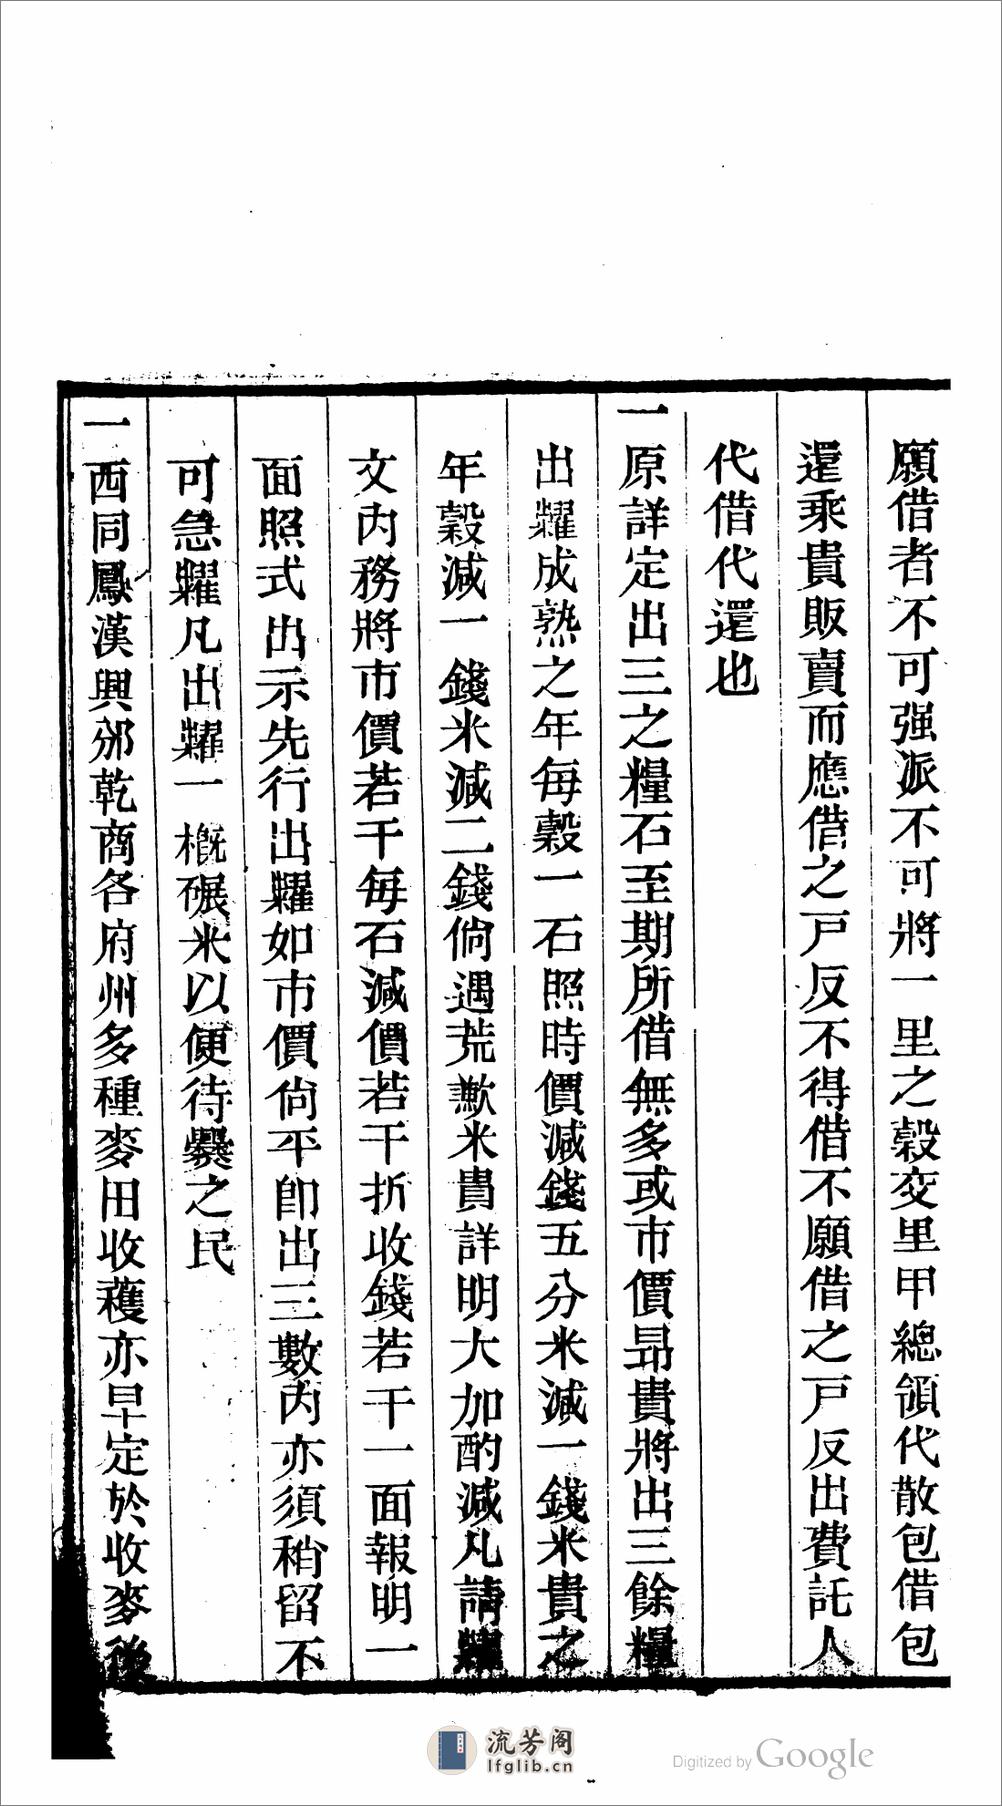 願借者不可强派不可將一里之榖交里甲總領代散包借包
還乘貴販賣而應借之戸反不得借不願借之戸反出費託人
代借代還也
一原詳定出三之糧石至期所借無多或市價昻貴將出三餘糧
出糶成熟之年每榖一石照時價減錢五分米減一錢米貴之
年榖減一錢米減二錢倘遇荒歉米貴詳明大加酌減凡請糶
文内務將市價若干每石減價若干折收錢若干一面報明一
面照式出示先行出糶如市價尙平卽出三數内亦須稍留不
可急糶凡出糶一概碾米以便待爨之民
一西同鳳漢興邠乾商各府州多種麥田收穫亦早定於收麥後
流芳阁
lfglib.cn
Digitized by Google